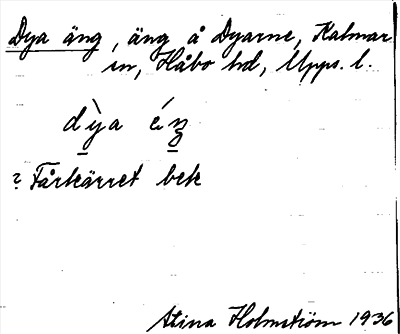 Dya äng, äng å Dyarne, Kalmar
sn, Håbo hd, Upps. l.
dỳa éŋ
? Fårkärret bek
Stina Holmström 1936